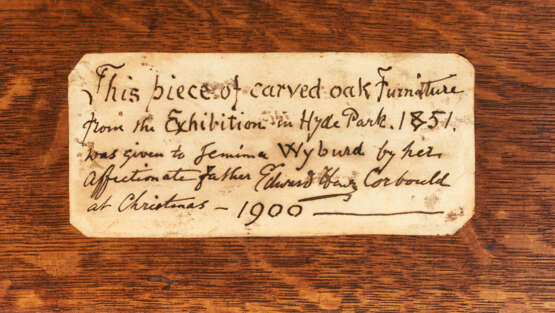 This piece of carved oak Furniture
from the Exhibition in Hyde Park. 1851.
was given to Jemima Wyburd by her
affectionate father Edward Henry Corbould
at Christmas - 1900